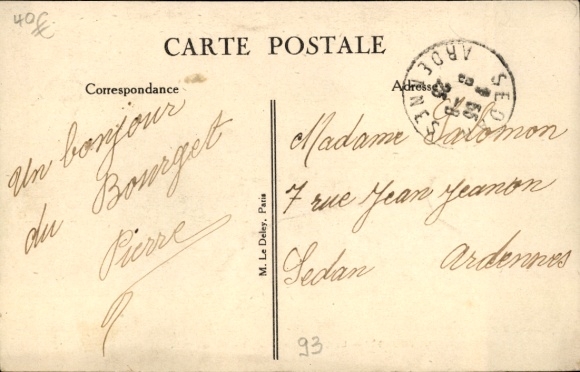 40€
CARTE POSTALE
Correspondance
Adresse
SEDAN
ARDENNES
Un bonjour
du Bourget
Pierre
M. Le Deley, Paris
Madame Salomon
7 rue Jean Jeanon
Sedan Ardennes
93